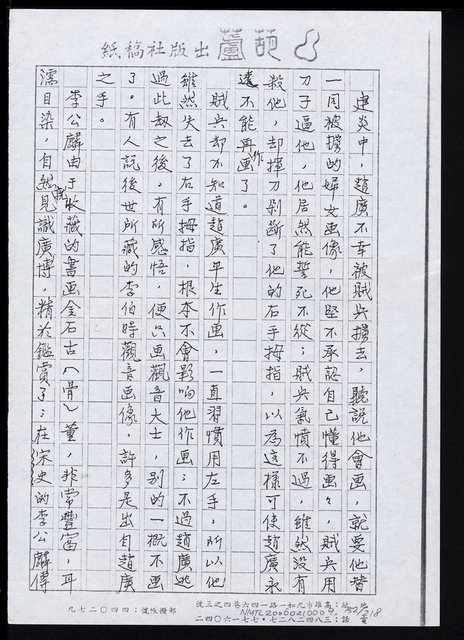 葫蘆出版社稿紙
建炎中，趙廣不幸被賊兵擄去，聽說他會画，就要他替
一同被擄的婦女画像，他堅不承認自己懂得画，賊兵用
刀子逼他，他居然能誓死不從；賊兵氣憤不過，雖然沒有
殺他，却揮刀剁斷了他的右手拇指，以為這樣可使趙廣永
遠不能再作画了。
賊兵却不知道趙廣平生作画，一直習慣用左手，所以他
雖然失去了右手拇指，根本不會影响他作画；不過趙廣逃
過此劫之後，有所感悟，便只画觀音大士，別的一概不画
了。有人說後世所藏的李伯時觀音画像，許多是出自趙廣
之手。
李公麟由于收藏的書画金石古（骨）董，非常豐富，耳
濡目染，自然見識廣博，精於鑑賞了；在宋史的李公麟傳
社址：高雄市九如一路一四六巷四之三號
電話：三八二二八四三・七七一六〇四二
郵撥帳號：四四〇二〇七九
NMTL20060210009